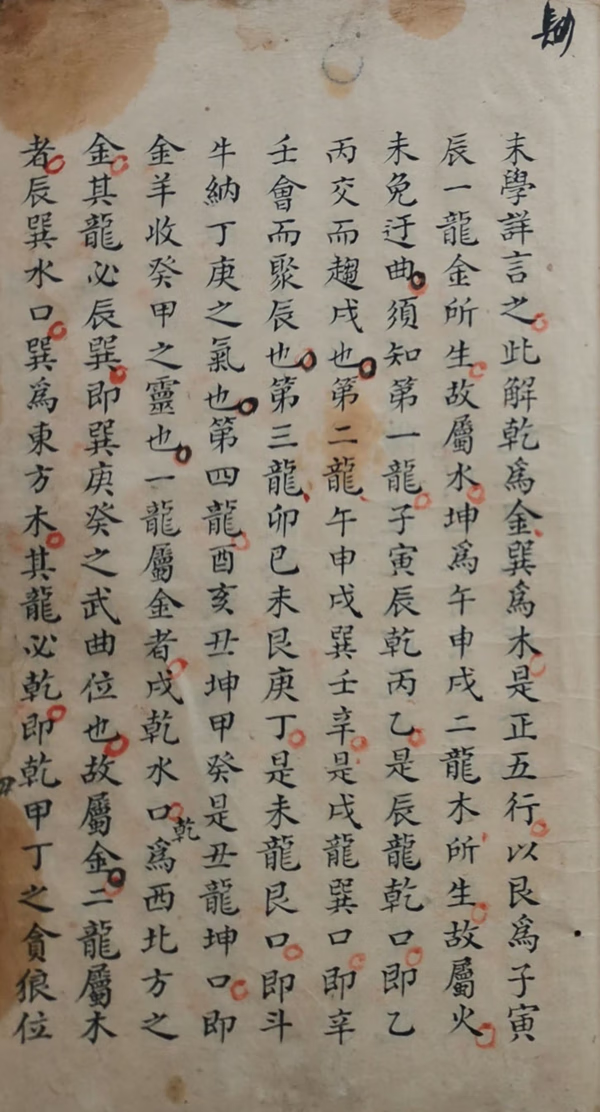 末學詳言之此解乾爲金巽爲木是正五行以艮爲子寅
辰一龍金所生故屬水坤爲午申戌二龍木所生故屬火
未免迂曲須知第一龍子寅辰乾丙乙是辰龍乾口即乙
丙交而趨戌也第二龍午申戌巽壬辛是戌龍巽口即辛
壬會而聚辰也第三龍卯巳未艮庚丁是未龍艮口即斗
牛納丁庚之氣也第四龍酉亥丑坤甲癸是丑龍坤口即
金羊收癸甲之靈也一龍屬金者戌乾水口乾爲西北方之
金其龍必辰巽即巽庚癸之武曲位也故屬金二龍屬木
者辰巽水口巽爲東方木其龍必乾即乾甲丁之貪狼位